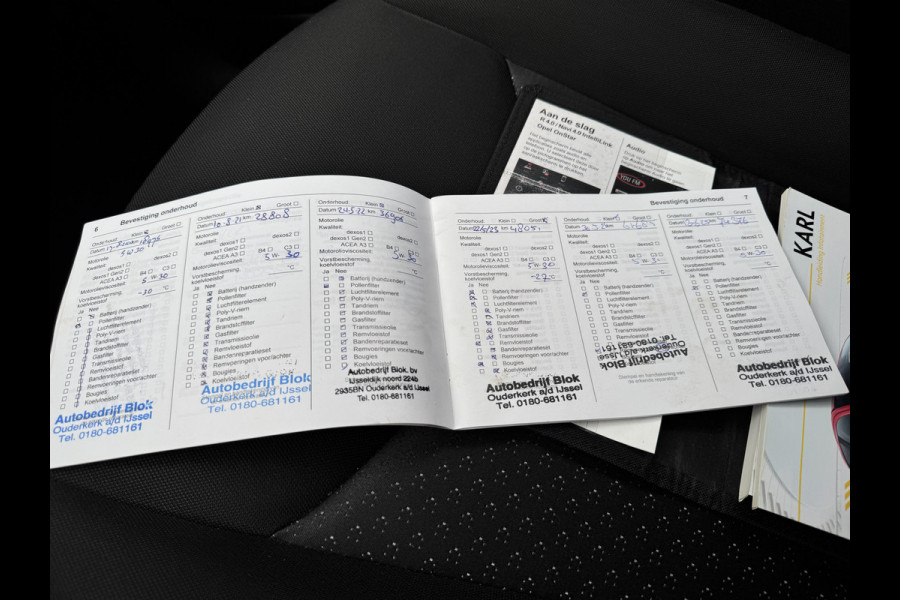 6 Bevestiging onderhoud
Onderhoud: Klein Groot
Datum km
Motorolie
Kwaliteit: 5W30
dexos1 dexos2
dexos1 Gen2
ACEA A3 B4 C3
Motorolieviscositeit: 5 W 30
Vorstbescherming, koelvloeistof -30 °C
Ja Nee
Batterij (handzender)
Pollenfilter
Luchtfilterelement
Poly-V-riem
Tandriem
Brandstoffilter
Gasfilter
Transmissieolie
Remvloeistof
Bandenreparatieset
Remvoeringen voor/achter
Bougies
Koelvloeistof
Autobedrijf Blok
Ouderkerk a/d IJssel
Tel. 0180-681161
Onderhoud: Klein Groot
Datum 10-8-21 km 28808
Motorolie
Kwaliteit:
dexos1 dexos2
dexos1 Gen2
ACEA A3 B4 C3
Motorolieviscositeit: 5 W 30
Vorstbescherming, koelvloeistof °C
Ja Nee
Batterij (handzender)
Pollenfilter
Luchtfilterelement
Poly-V-riem
Tandriem
Brandstoffilter
Gasfilter
Transmissieolie
Remvloeistof
Bandenreparatieset
Remvoeringen voor/achter
Bougies
Koelvloeistof
Autobedrijf Blok
Ouderkerk a/d IJssel
Tel. 0180-681161
Onderhoud: Klein Groot
Datum 24-5-22 km
Motorolie
Kwaliteit:
dexos1 dexos2
dexos1 Gen2
ACEA A3 B4 C3
Motorolieviscositeit: 5 W 30
Vorstbescherming, koelvloeistof °C
Ja Nee
Batterij (handzender)
Pollenfilter
Luchtfilterelement
Poly-V-riem
Tandriem
Brandstoffilter
Gasfilter
Transmissieolie
Remvloeistof
Bandenreparatieset
Remvoeringen voor/achter
Bougies
Koelvloeistof
Autobedrijf Blok, bv
IJsseldijk noord 224b
2935BN Ouderkerk a/d IJssel
Tel. 0180-681161
Bevestiging onderhoud 7
Onderhoud: Klein Groot
Datum km
Motorolie
Kwaliteit:
dexos1 dexos2
dexos1 Gen2
ACEA A3 B4 C3
Motorolieviscositeit: 5 W 30
Vorstbescherming, koelvloeistof -22 °C
Ja Nee
Batterij (handzender)
Pollenfilter
Luchtfilterelement
Poly-V-riem
Tandriem
Brandstoffilter
Gasfilter
Transmissieolie
Remvloeistof
Bandenreparatieset
Remvoeringen voor/achter
Bougies
Koelvloeistof
Autobedrijf Blok
Ouderkerk a/d IJssel
Tel. 0180-681161
Onderhoud: Klein Groot
Datum km
Motorolie
Kwaliteit:
dexos1 dexos2
dexos1 Gen2
ACEA A3 B4 C3
Motorolieviscositeit:
Vorstbescherming, koelvloeistof °C
Ja Nee
Batterij (handzender)
Pollenfilter
Luchtfilterelement
Poly-V-riem
Tandriem
Brandstoffilter
Gasfilter
Transmissieolie
Autobedrijf Blok
Ouderkerk a/d IJssel
Tel. 0180-681161
Onderhoud: Klein Groot
Datum km
Motorolie
Kwaliteit:
dexos1 dexos2
dexos1 Gen2
ACEA A3 B4 C3
Motorolieviscositeit:
Vorstbescherming, koelvloeistof °C
Ja Nee
Batterij (handzender)
Pollenfilter
Luchtfilterelement
Poly-V-riem
Tandriem
Brandstoffilter
Gasfilter
Transmissieolie
Remvloeistof
Bandenreparatieset
Remvoeringen voor/achter
Bougies
Koelvloeistof
Autobedrijf Blok
Ouderkerk a/d IJssel
Tel. 0180-681161
Aan de slag
R 4.0 / Navi 4.0 IntelliLink
Opel OnStar
Audio
KARL